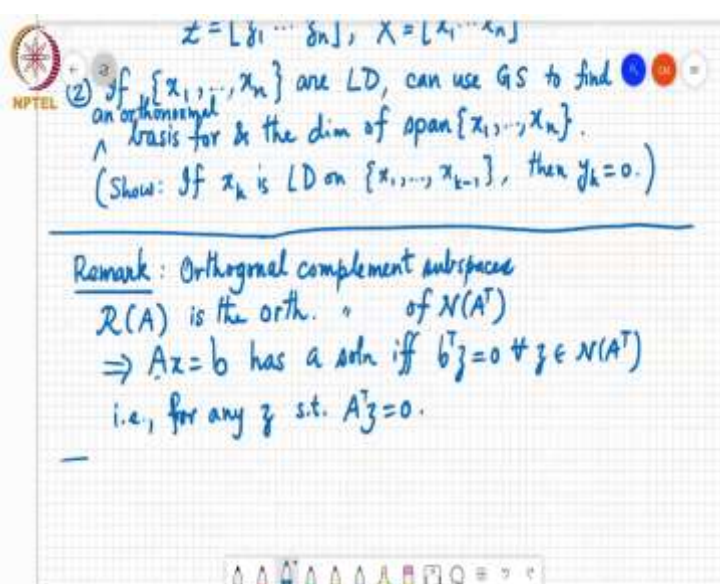 Z = [z₁ ... zₙ], X = [x₁ ... xₙ]
NPTEL
(2) If {x₁, ..., xₙ} are LD, can use GS to find
an orthonormal
^ basis for & the dim of span {x₁, .., xₙ}.
(Show: If xₖ is LD on {x₁, ..., xₖ₋₁}, then yₖ = 0.)
Remark : Orthogonal complement subspaces
R(A) is the orth. " of N(Aᵀ)
⇒ Ax = b has a soln iff bᵀz = 0 ∀ z ∈ N(Aᵀ)
i.e., for any z s.t. Aᵀz = 0.